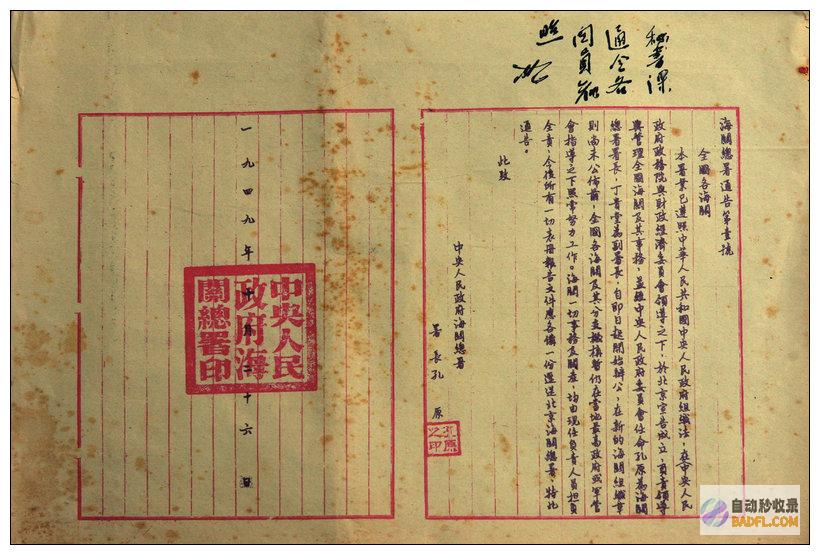 秘書課
通令各
関員知
照
海關總署通告第壹號
全國各海關
本署業已遵照中華人民共和國中央人民政府組織法,在中央人民
政府政務院與財政經濟委員會領導之下,於北京宣告成立,負責領導
與管理全國海關及其事務,並經中央人民政府委員會任命孔原為海關
總署署長,丁貴堂為副署長,自即日起開始辦公,在新的海關組織章
則尚未公佈前,全國各海關及其分支機構暫仍在當地最高政府或軍管
會指導之下照常努力工作。海關一切事務及關產,均由現任負責人員担負
全責,今後所有一切表冊報告文件應各備一份逕送北京海關總署,特此
通告。
此致
中央人民政府海關總署
署長孔原
孔原之印
一九四九年十月二十六日
中央人民
政府海
關總署印
自动秒收录
BADFL.COM